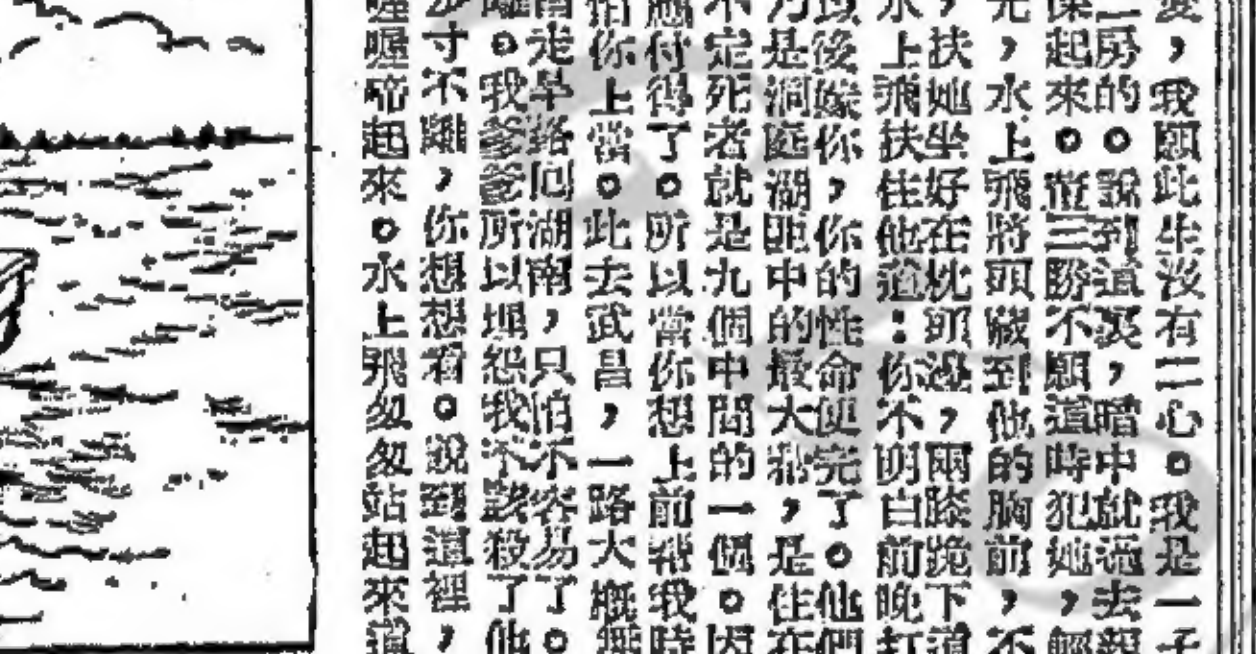 愛，我願此生沒有二心。我是一子
二房的。說到這裏，暗中就過去親
起來。崔三勝不願這時犯她，輕
光，水上飛將頭藏到他的胸前，不
，扶她坐好在枕頭邊，兩膝跪下道
水上飛扶住他道：你不明白前晚打
以後嫁你，你的性命便完了。他們
乃是洞庭湖匪中的最大幫，是住在
不定死者就是九個中間的一個。因
應付得了。所以當你想上前幫我時
怕你上當。此去武昌，一路大概無
由走旱路回湖南，只怕不容易了。
離。我爹爹所以埋怨我不該殺了他
步寸不離，你想想看。說到這裡，
喔喔啼起來。水上飛匆匆站起來道